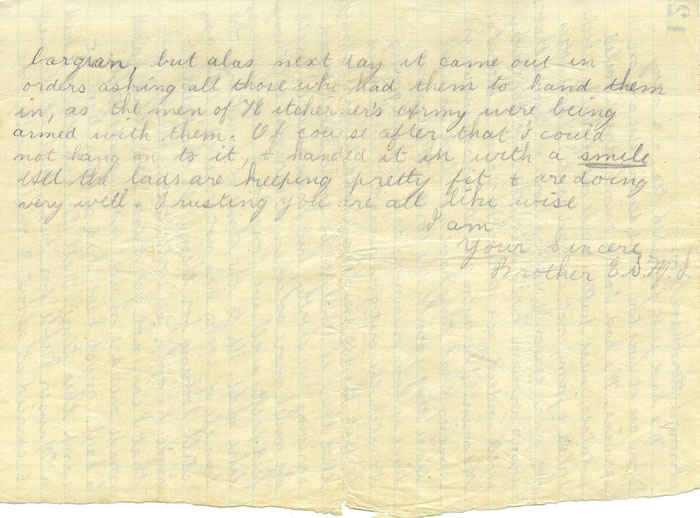 bargian, but alas next day it came out in
orders asking all those who had them to hand them
in, as the men of Kitcherner's Army were being
armed with them. Of course after that I could
not hang on to it, & handed it in with a smile
All the lads are keeping pretty fit, & are doing
very well. Trusting you are all like wise
I am
Your Sincere
Brother E.S.
12